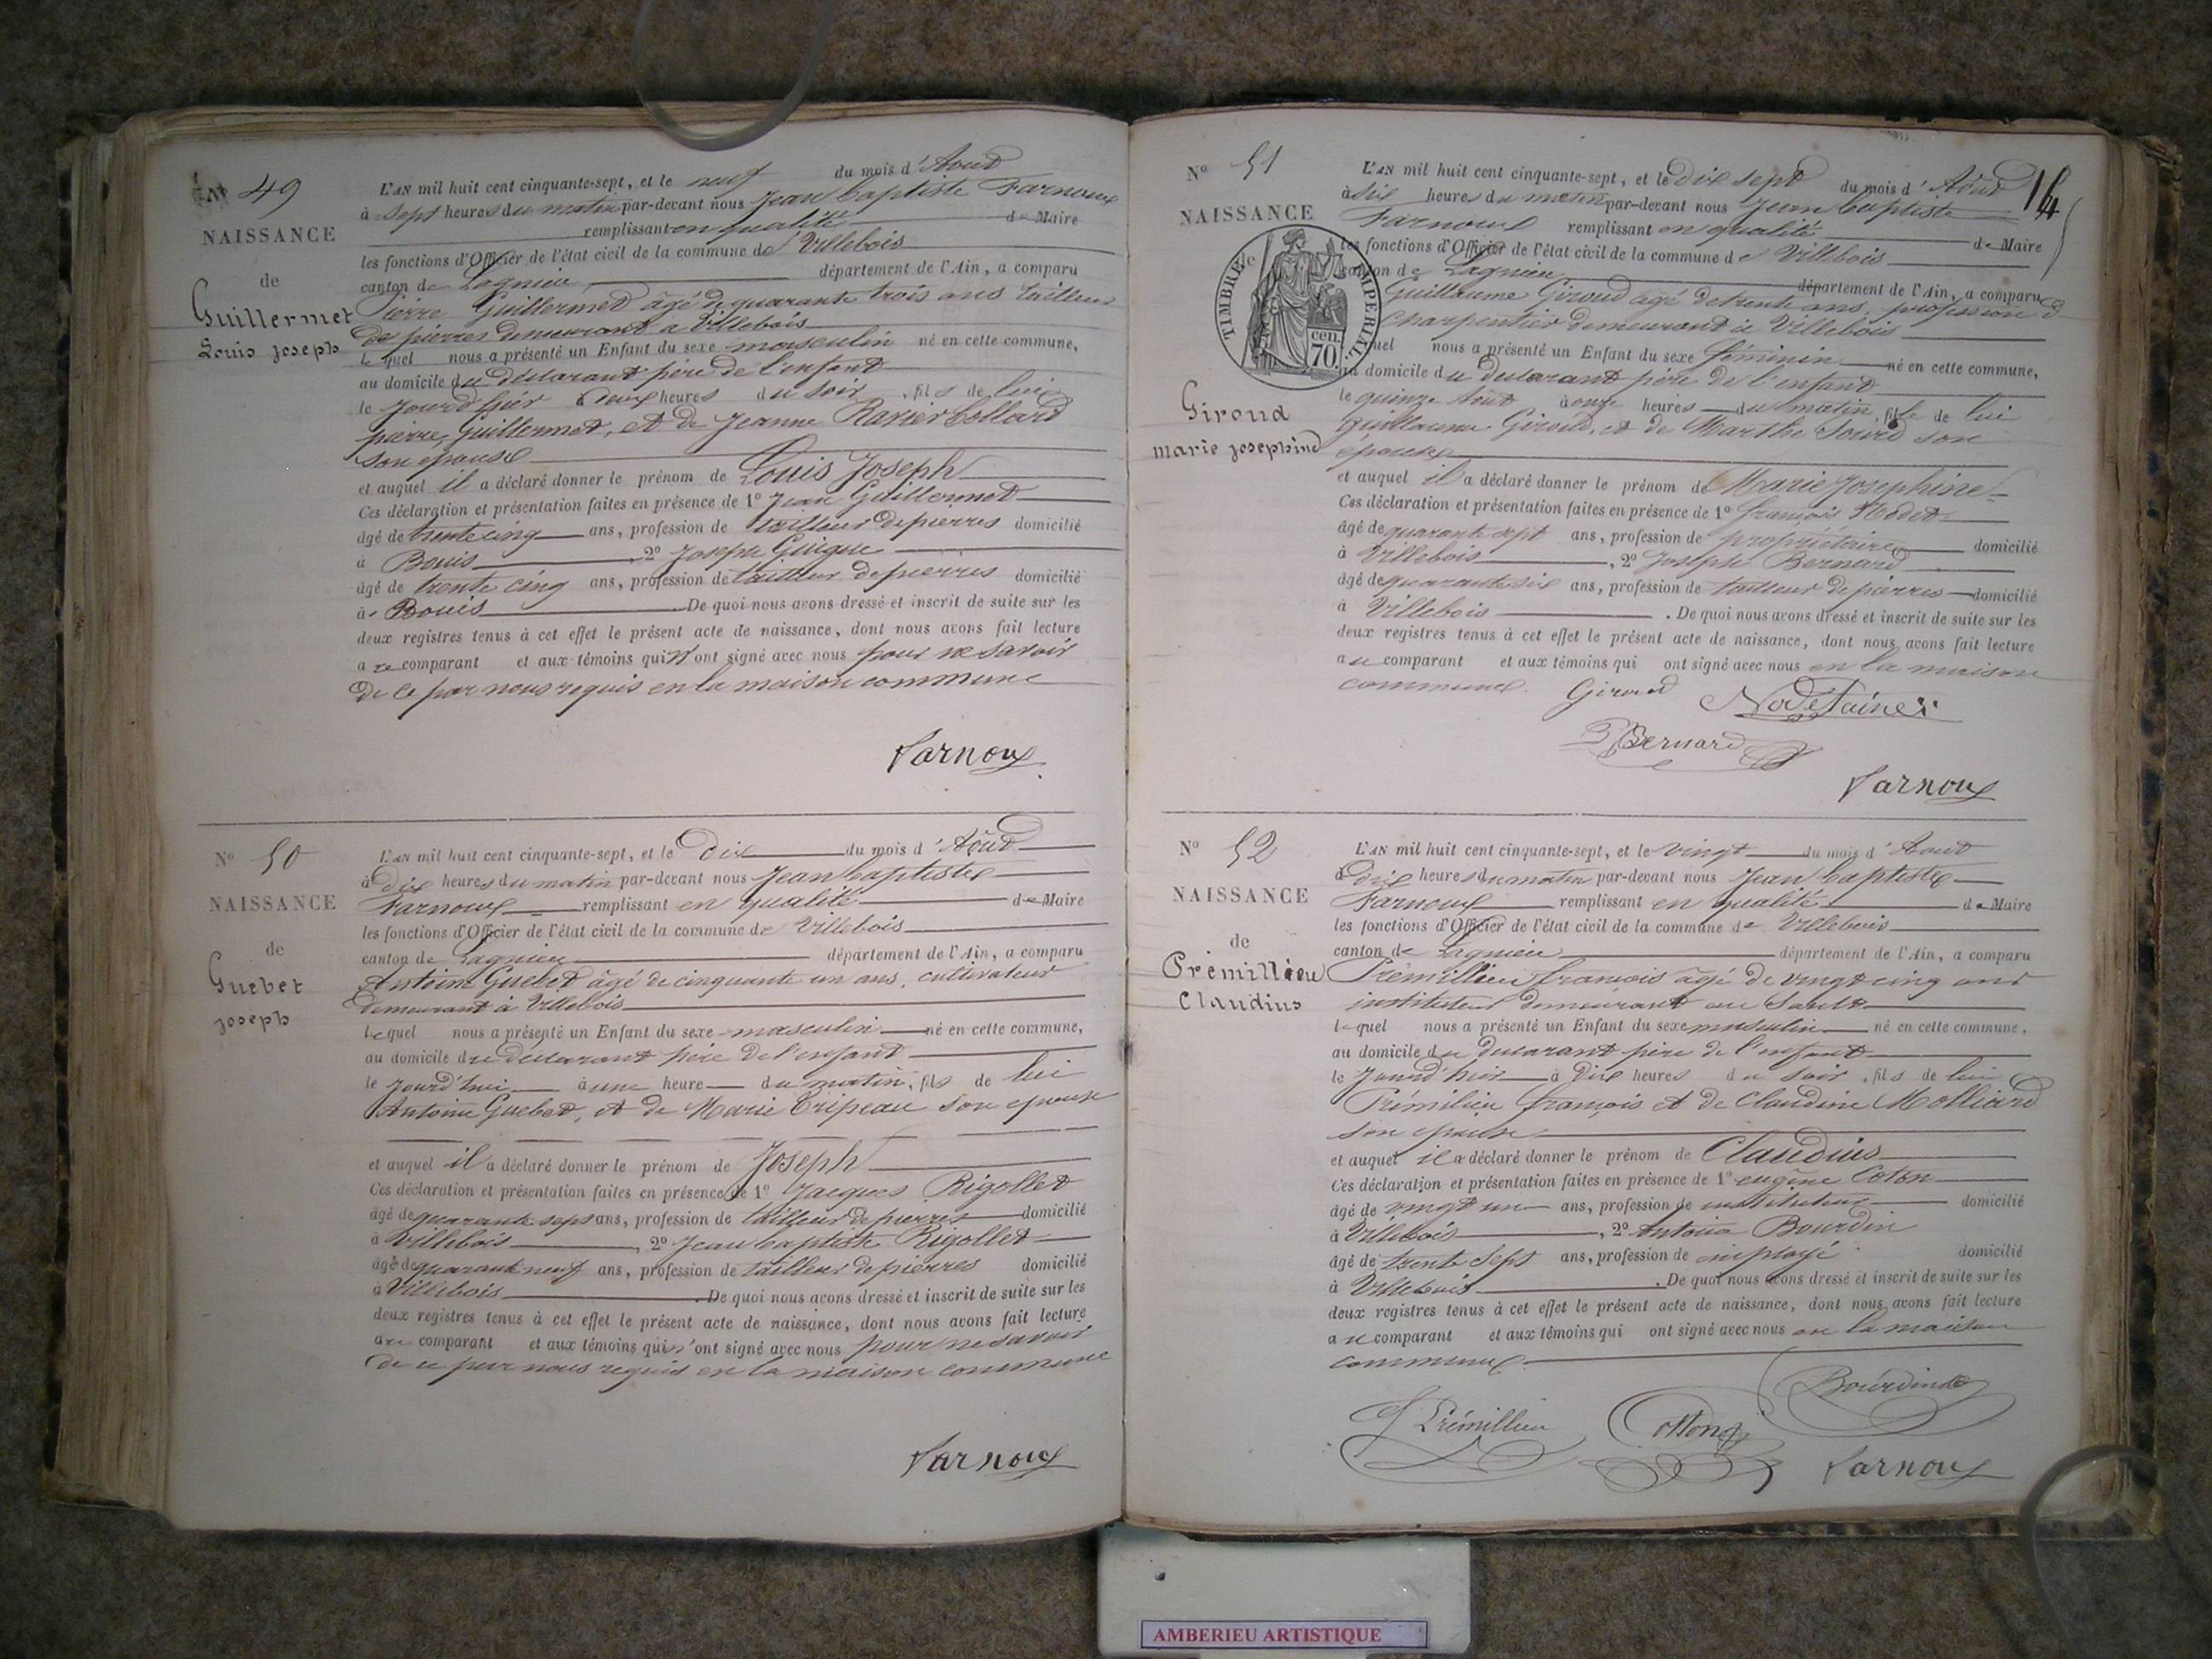 49
NAISSANCE
de
Guillermet
Louis joseph
L'AN mil huit cent cinquante-sept, et le neuf du mois d'Aout
à sept heures du matin par-devant nous Jean baptiste Farnoux
remplissant en qualité de Maire
les fonctions d'Officier de l'état civil de la commune de Villebois
canton de Lagnieu département de l'Ain, a comparu
Pierre Guillermet âgé de quarante trois ans tailleur
de pierres demeurant a Villebois
lequel nous a présenté un Enfant du sexe masculin né en cette commune,
au domicile du déclarant père de l'enfant
le jourd'hier à deux heures du soir, fils de lui
pierre Guillermet, et de Jeanne Ravier bollard
son epouse
et auquel il a déclaré donner le prénom de Louis Joseph
Ces déclaration et présentation faites en présence de 1º Jean Guillermet
âgé de trente cinq ans, profession de tailleur de pierres domicilié
à Bouis, 2º Joseph Guigue
âgé de trente cinq ans, profession de tailleur de pierres domicilié
à Bouis. De quoi nous avons dressé et inscrit de suite sur les
deux registres tenus à cet effet le présent acte de naissance, dont nous avons fait lecture
au comparant et aux témoins qui n'ont signé avec nous pour ne savoir
de ce par nous requis en la maison commune
Farnoux
Nº 50
NAISSANCE
de
Guebet
joseph
L'AN mil huit cent cinquante-sept, et le dix du mois d'Aôut
à dix heures du matin par-devant nous Jean baptiste
Farnoux remplissant en qualité de Maire
les fonctions d'Officier de l'état civil de la commune de Villebois
canton de Lagnieu département de l'Ain, a comparu
Antoine Guebet âgé de cinquante un ans, cultivateur
demeurant à Villebois
lequel nous a présenté un Enfant du sexe masculin né en cette commune,
au domicile du déclarant père de l'enfant
le jourd'hui à une heure du matin, fils de lui
Antoine Guebet, et de Marie Tripeau son epouse
et auquel il a déclaré donner le prénom de Joseph
Ces déclaration et présentation faites en présence de 1º Jacques Rigollet
âgé de quarante sept ans, profession de tailleur de pierres domicilié
à Villebois, 2º Jean baptiste Rigollet
âgé de quarante neuf ans, profession de tailleur de pierres domicilié
à Villebois. De quoi nous avons dressé et inscrit de suite sur les
deux registres tenus à cet effet le présent acte de naissance, dont nous avons fait lecture
au comparant et aux témoins qui n'ont signé avec nous pour ne savoir
de ce par nous requis en la maison commune
Farnoux
Nº 51
NAISSANCE
de
TIMBRE IMPERIAL
cen.
70.
Giroud
marie josephine
14
L'AN mil huit cent cinquante-sept, et le dix sept du mois d'Aôut
à six heures du matin par-devant nous Jean baptiste
Farnoux remplissant en qualité de Maire
les fonctions d'Officier de l'état civil de la commune de Villebois
canton de Lagnieu département de l'Ain, a comparu
Guillaume Giroud âgé de trente ans, profession d
Charpentier demeurant à Villebois
lequel nous a présenté un Enfant du sexe féminin né en cette commune,
au domicile du declarant père de l'enfant
le quinze Aôut à onze heures du matin, fille de lui
Guillaume Giroud, et de Marthe Sourd son
épouse
et auquel il a déclaré donner le prénom de Marie Josephine
Ces déclaration et présentation faites en présence de 1º françois Nodet
âgé de quarante sept ans, profession de propriétaire domicilié
à Villebois, 2º Joseph Bernard
âgé de quarante six ans, profession de tailleur de pierres domicilié
à Villebois. De quoi nous avons dressé et inscrit de suite sur les
deux registres tenus à cet effet le présent acte de naissance, dont nous avons fait lecture
au comparant et aux témoins qui ont signé avec nous en la maison
commune. Giroud Nodet ainé
Bernard
Farnoux
Nº 52
NAISSANCE
de
Prémillieu
Claudius
L'AN mil huit cent cinquante-sept, et le vingt du mois d'Aout
à dix heures du matin par-devant nous Jean baptiste
Farnoux remplissant en qualité de Maire
les fonctions d'Officier de l'état civil de la commune de Villebois
canton de Lagnieu département de l'Ain, a comparu
Prémillieu françois âgé de vingt cinq ans
instituteur demeurant au Sault
lequel nous a présenté un Enfant du sexe masculin né en cette commune,
au domicile du declarant père de l'enfant
le jourd'hier à dix heures du soir, fils de lui
Prémilieu françois et de Claudine Molliard
son epouse
et auquel il a déclaré donner le prénom de Claudius
Ces déclaration et présentation faites en présence de 1º eugène Coton
âgé de vingt un ans, profession de instituteur domicilié
à Villebois, 2º Antoine Bourdin
âgé de trente sept ans, profession de employé domicilié
à Villebois. De quoi nous avons dressé et inscrit de suite sur les
deux registres tenus à cet effet le présent acte de naissance, dont nous avons fait lecture
au comparant et aux témoins qui ont signé avec nous en la maison
commune.
Bourdin
Prémillieu Cottong
Farnoux
AMBERIEU ARTISTIQUE